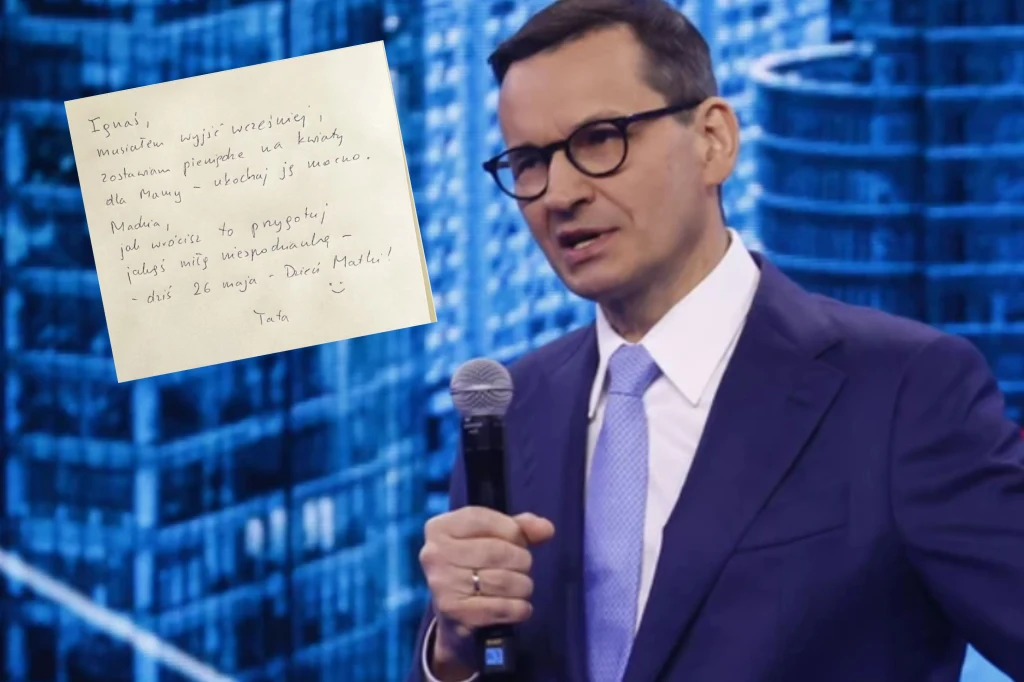 Ignaś,
musiałem wyjść wcześniej,
zostawiam pieniądze na kwiaty
dla Mamy - ukochaj ją mocno.
Madzia,
jak wrócisz to przygotuj
jakąś miłą niespodziankę -
- dziś 26 maja - Dzień Matki!
Tata